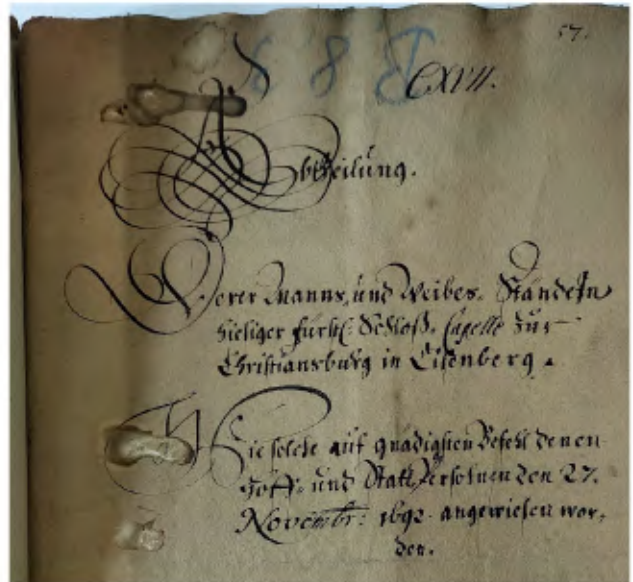 57.
CXVII.
Abtheilung.
Derer Manns, und Weibes. Ständ in
hieliger fürstl: Schloß. Capelle zur
Christiansburg in Eisenberg.
Wie solche auf gnädigsten Befehl denen
Hoff. und Statt Persohnen den 27.
Novembr: 1692. angewiesen wor,
den.